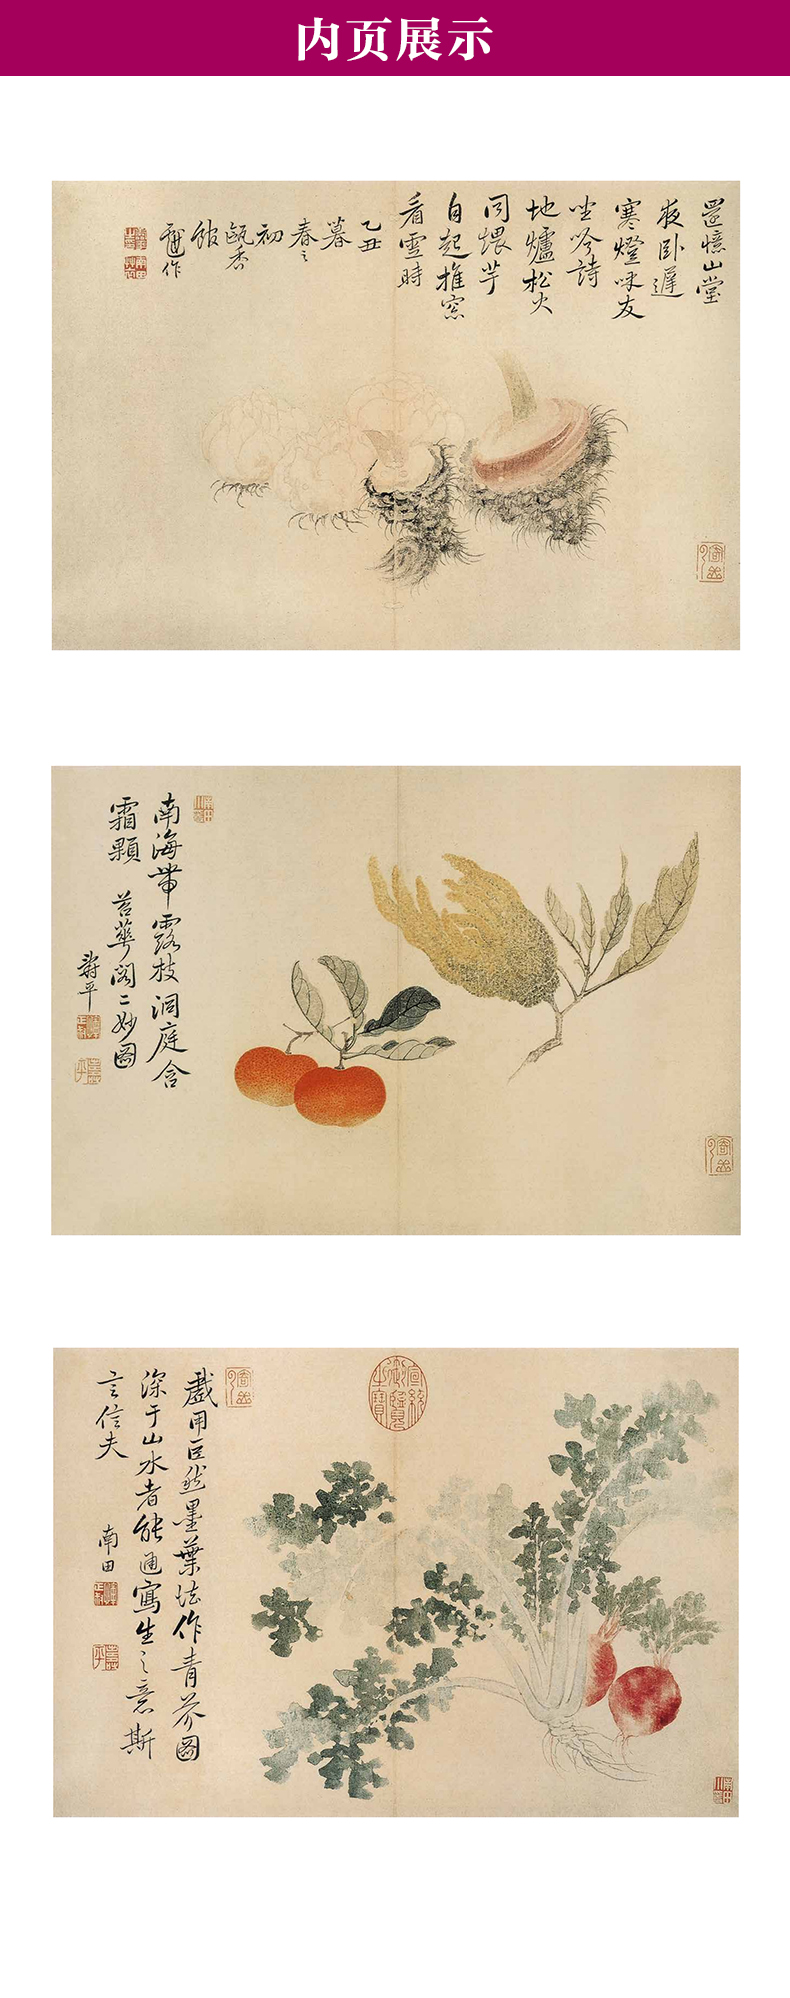 内页展示
山堂
夜卧遲
寒燈咏友
坐吟詩
地爐松火
同煨芋
自起推窓
看雪時
乙丑
暮
春之
初
甌香
館
作
南海帶露枝洞庭含
霜顆 苔華閣二妙圖
壽平
戲用巨然墨葉法作青芥圖
深于山水者能通寫生之意斯
言信夫
南田